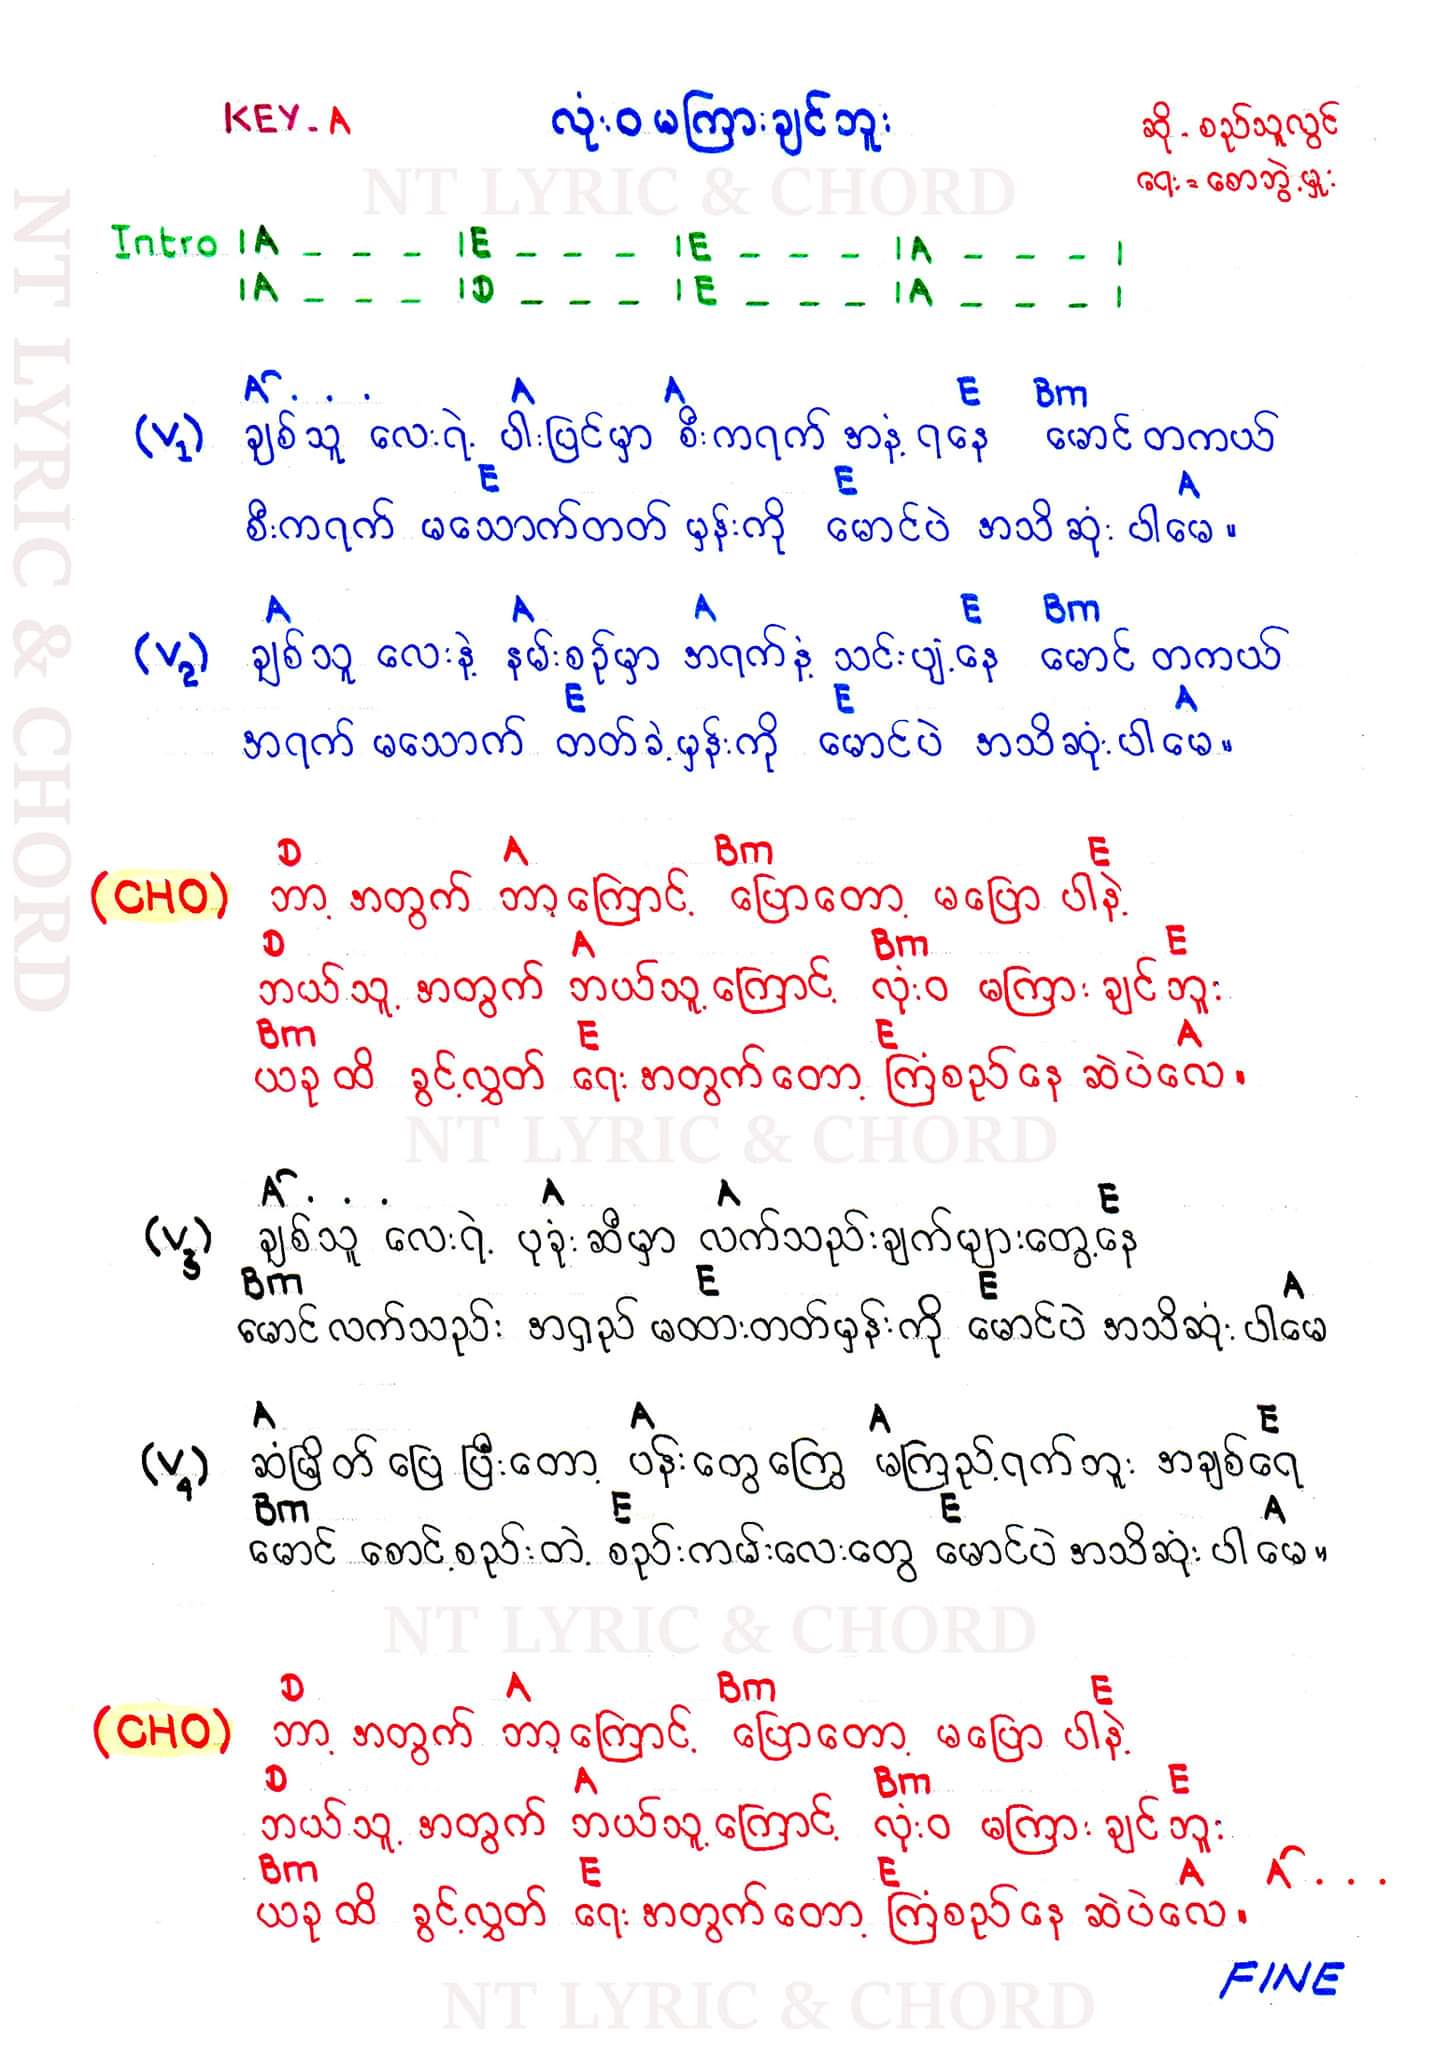 KEY - A
လုံးဝမကြားချင်ဘူး
ဆို - စည်သူလွင်
ရေး = စောဘွဲ့မှူး
NT LYRIC & CHORD
NT LYRIC & CHORD
Intro |A _ _ _ |E _ _ _ |E _ _ _ |A _ _ _ |
|A _ _ _ |D _ _ _ |E _ _ _ |A _ _ _ |
A . . . A A E Bm
(V1) ချစ်သူ လေးရဲ့ ပါးပြင်မှာ စီးကရက် အနံ့ ရနေ မောင် တကယ်
E E A
စီးကရက် မသောက်တတ် မှန်းကို မောင်ပဲ အသိ ဆုံး ပါမေ။
A A A E Bm
(V2) ချစ်သူ လေးနဲ့ နမ်းစဉ်မှာ အရက်နံ့ သင်းပျံ့နေ မောင် တကယ်
E E A
အရက် မသောက် တတ်ခဲ့မှန်းကို မောင်ပဲ အသိဆုံးပါမေ။
D A Bm E
(CHO) ဘာ့ အတွက် ဘာ့ကြောင့် ပြောတော့ မပြော ပါနဲ့
D A Bm E
ဘယ်သူ့ အတွက် ဘယ်သူ့ကြောင့် လုံးဝ မကြား ချင်ဘူး
Bm E E A
ယခုထိ ခွင့်လွှတ် ရေးအတွက်တော့ ကြံစည်နေ ဆဲပဲလေ။
NT LYRIC & CHORD
A . . . A A E
(V3) ချစ်သူ လေးရဲ့ ပုခုံးဆီမှာ လက်သည်းချက်များတွေ့နေ
Bm E E A
မောင်လက်သည်း အရှည် မထားတတ်မှန်းကို မောင်ပဲ အသိဆုံး ပါမေ
A A A E
(V4) ဆံမြိတ် ပြေ ပြီးတော့ ပန်းတွေကြွေ မကြည့်ရက်ဘူး အချစ်ရေ
Bm E E A
မောင် စောင့်စည်းတဲ့ စည်းကမ်းလေးတွေ မောင်ပဲ အသိဆုံး ပါမေ။
NT LYRIC & CHORD
D A Bm E
(CHO) ဘာ့ အတွက် ဘာ့ကြောင့် ပြောတော့ မပြော ပါနဲ့
D A Bm E
ဘယ်သူ့ အတွက် ဘယ်သူ့ကြောင့် လုံးဝ မကြား ချင်ဘူး
Bm E E A A . . .
ယခုထိ ခွင့်လွှတ် ရေးအတွက်တော့ ကြံစည်နေ ဆဲပဲလေ။
FINE
NT LYRIC & CHORD